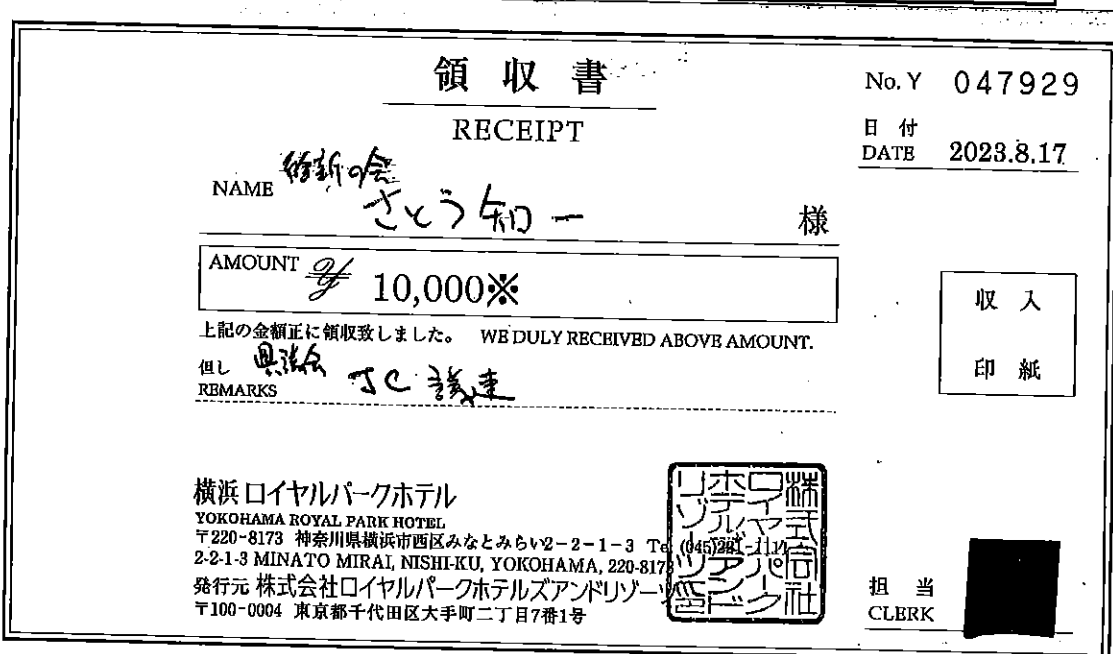 領収書
RECEIPT
No. Y 047929
日付
DATE 2023.8.17
維新の会
NAME さとう知一 様
AMOUNT ¥ 10,000※
上記の金額正に領収致しました。 WE DULY RECEIVED ABOVE AMOUNT.
但し 県議会 JC 議連
REMARKS
収入
印紙
横浜ロイヤルパークホテル
YOKOHAMA ROYAL PARK HOTEL
〒220-8173 神奈川県横浜市西区みなとみらい2-2-1-3 Tel (045)221-1111
2-2-1-3 MINATO MIRAI, NISHI-KU, YOKOHAMA, 220-8173
発行元 株式会社ロイヤルパークホテルズアンドリゾーツ
〒100-0004 東京都千代田区大手町二丁目7番1号
株式会社
ロイヤルパーク
ホテルズアンド
リゾーツ
担当
CLERK